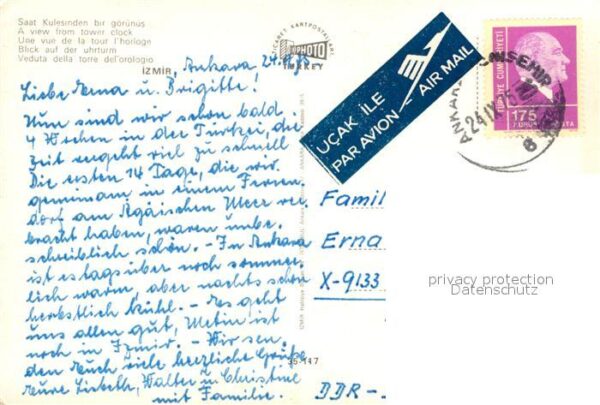 Saat Kulesinden bir görünüş
A view from tower clock
Une vue de la tour l'horloge
Blick auf der uhrturm
Veduta della torre del'orologio
İZMİR,
TICARET KARTPOSTAL
PHOTO
TURKEY
Ankara, 24.9.75
Liebe Erna u. Brigitte!
Nun sind wir schon bald
4 Wochen in der Türkei, die
Zeit vergeht viel zu schnell
Die ersten 14 Tage, die wir
gemeinsam in einem Ferien-
dorf am Ägäischen Meer ver-
bracht haben, waren unbe-
schreiblich schön. - In Ankara
ist es tagsüber noch sommer-
lich warm, aber nachts schon
herbstlich kühl. - Es geht
uns allen gut, Metin ist
noch in Izmir. - Wir sen-
den Euch viele herzliche Grüße
Eure Lisbeth, Walter u. Christine
mit Familie.
35-117
UÇAK İLE
PAR AVION
AIR MAIL
TÜRKİYE CUMHURİYETİ
175
KURUŞ POSTA
ANKARA YENİŞEHİR
24 IX 75
8
Famil
Erna
X-9133
DDR-
privacy protection
Datenschutz